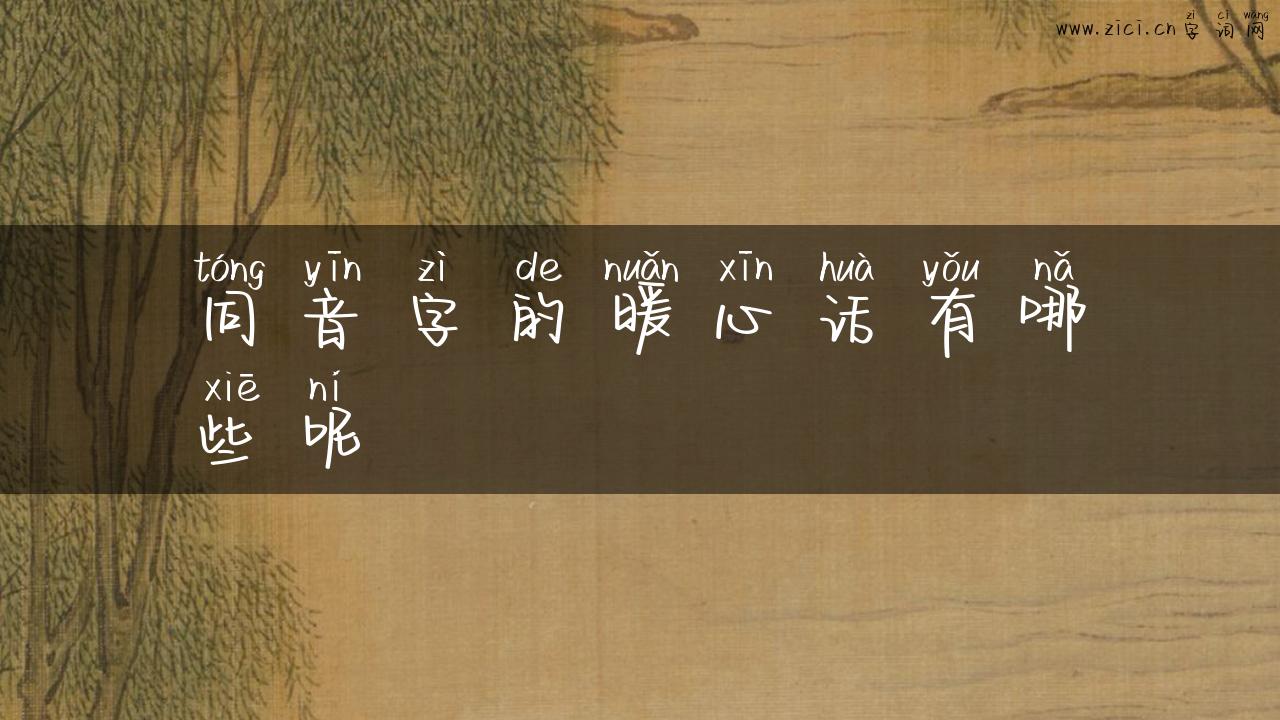 zì cí wǎng
www.zici.cn 字词网
tóng yīn zì de nuǎn xīn huà yǒu nǎ
同音字的暖心话有哪
xiē ní
些呢